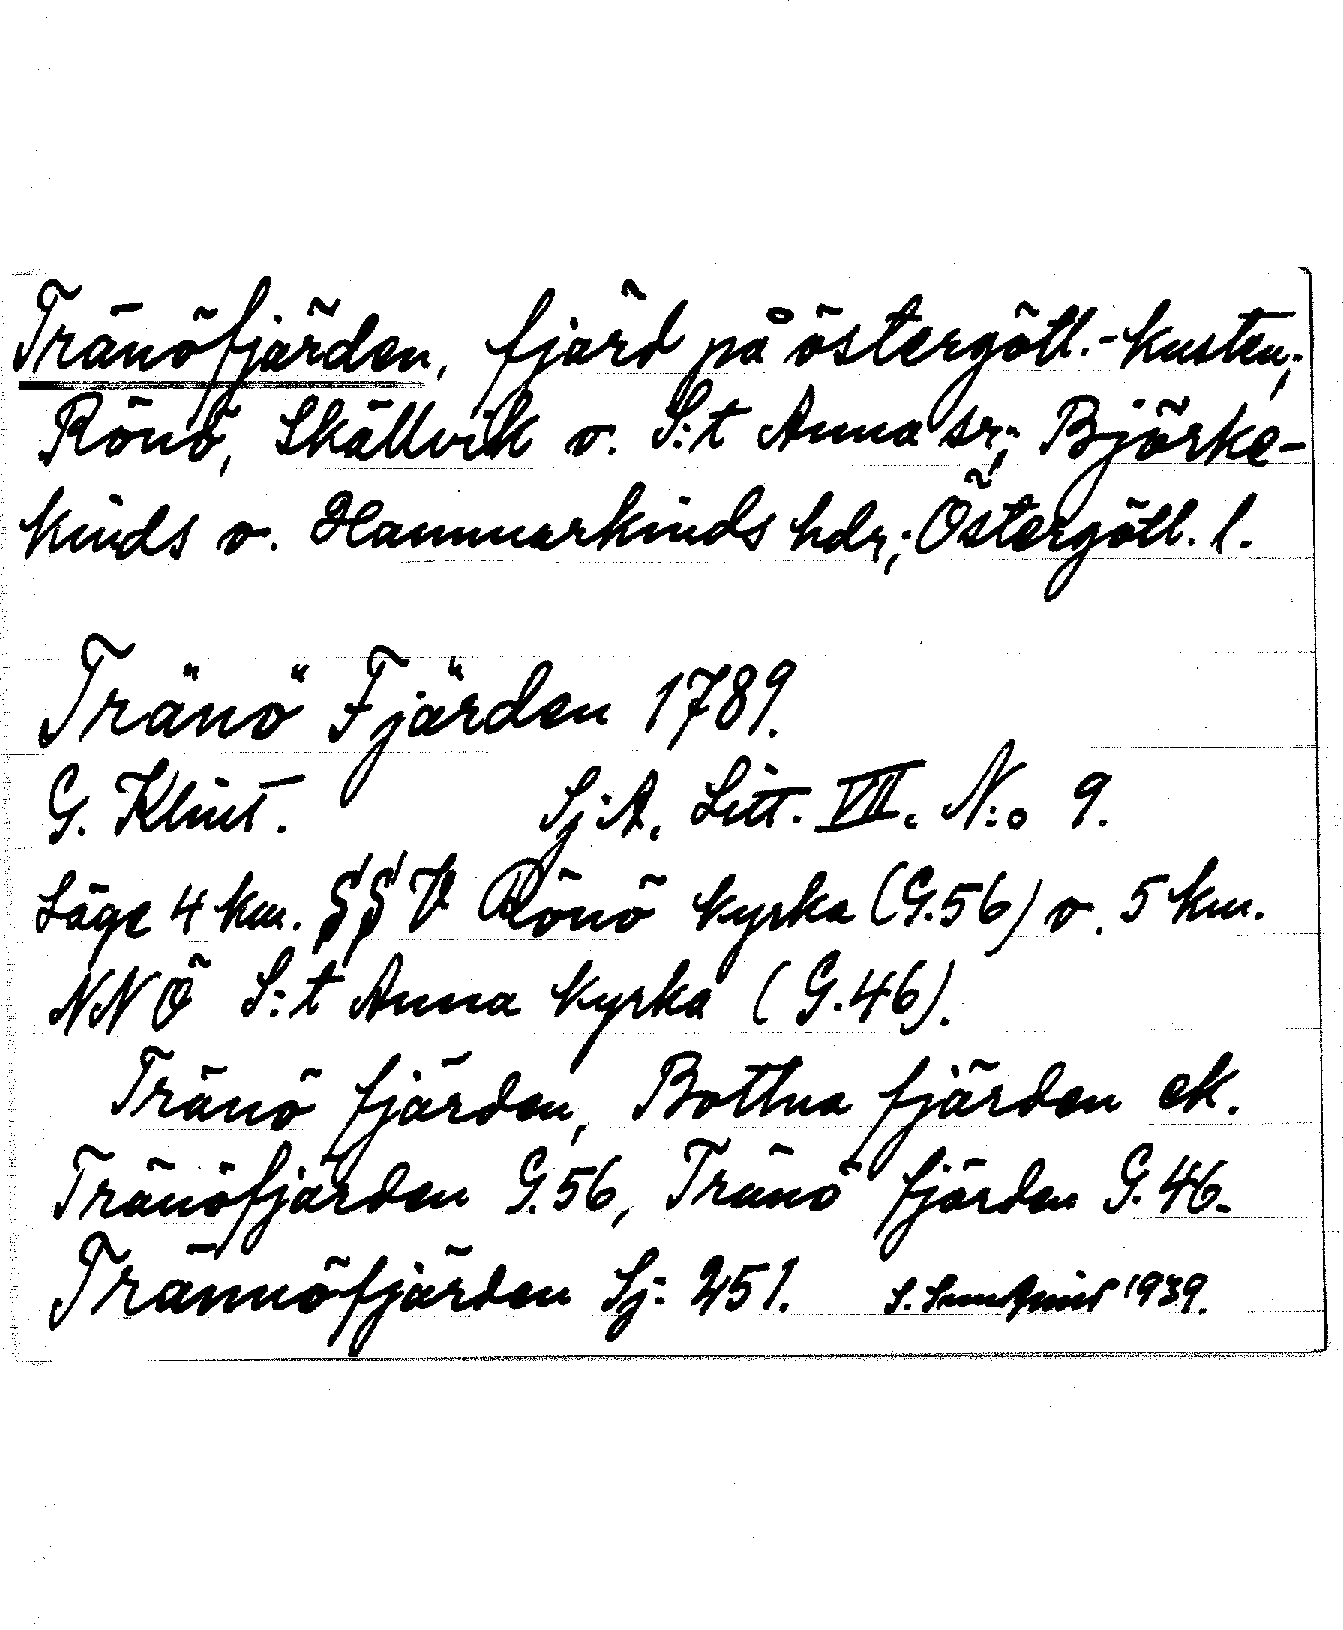 Tränöfjärden, fjärd på östergötl.-kusten;
Rönö, Skällvik o. S:t Anna sr; Björke-
kinds o. Hammarkinds hdr; Östergötl. l.
Tränö Fjärden 1789.
G. Klint. Sj:A. Litt. VII. N:o 9.
Läge 4 km. SSV Rönö kyrka (G.56) o. 5 km.
NNÖ S:t Anna kyrka (G.46).
Tränö fjärden, Bottna fjärden ek.
Tränöfjärden G.56, Tränö fjärden G.46.
Trännöfjärden Sj: 251. S. 1939.